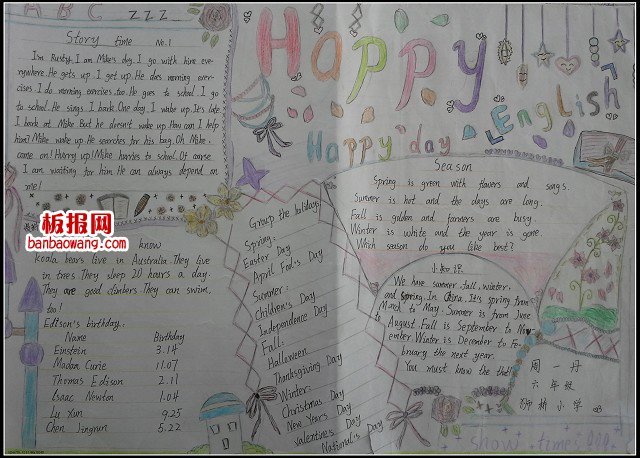 A B C Z Z Z
Story time No.1
I'm Rusty. I am Mike's dog. I go with him eve-
rywhere. He gets up. I get up. He does morning exer-
cises. I do morning exercises, too. He goes to school. I go
to school. He sings. I bark. One day. I wake up. It's late.
I bark at Mike. But he doesn't wake up. How can I help
him? Mike wake up. He searches for his bag. Oh Mike.
come on! Hurry up! Mike hurries to school. Of course
I am waiting for him. He can always depend on
me!
板报网
banbaowang.com
know
koala bears live in Australia. They live
in trees. They sleep 20 hours a day.
They are good climbers. They can swim,
too!
Edison's birthday:
Name Birthday
Einstein 3.14
Madan Curie 11.07
Thomas Edison 2.11
Isaac Newton 1.04
Lu Xun 9.25
Chen Jingrun 5.22
Happy
English
Happy day
Group the holidays
Spring:
Easter Day
April Fool's Day
Summer:
Children's Day
Independence Day
Fall:
Halloween
Thanksgiving Day
Winter:
Christmas Day
New Year's Day
Valentine's Day
National's Day
Season
Spring is green with flowers and songs.
Summer is hot and the days are long.
Fall is golden and farmers are busy.
Winter is white and the year is gone.
Which season do you like best?
小知识
We have summer, fall, winter,
and spring. In China. It's spring from
March to May. Summer is from June
to August. Fall is September to Nov-
ember. Winter is December to Fe-
bruary the next year.
You must know the that!
周一丹
六年级
柳林小学
show time